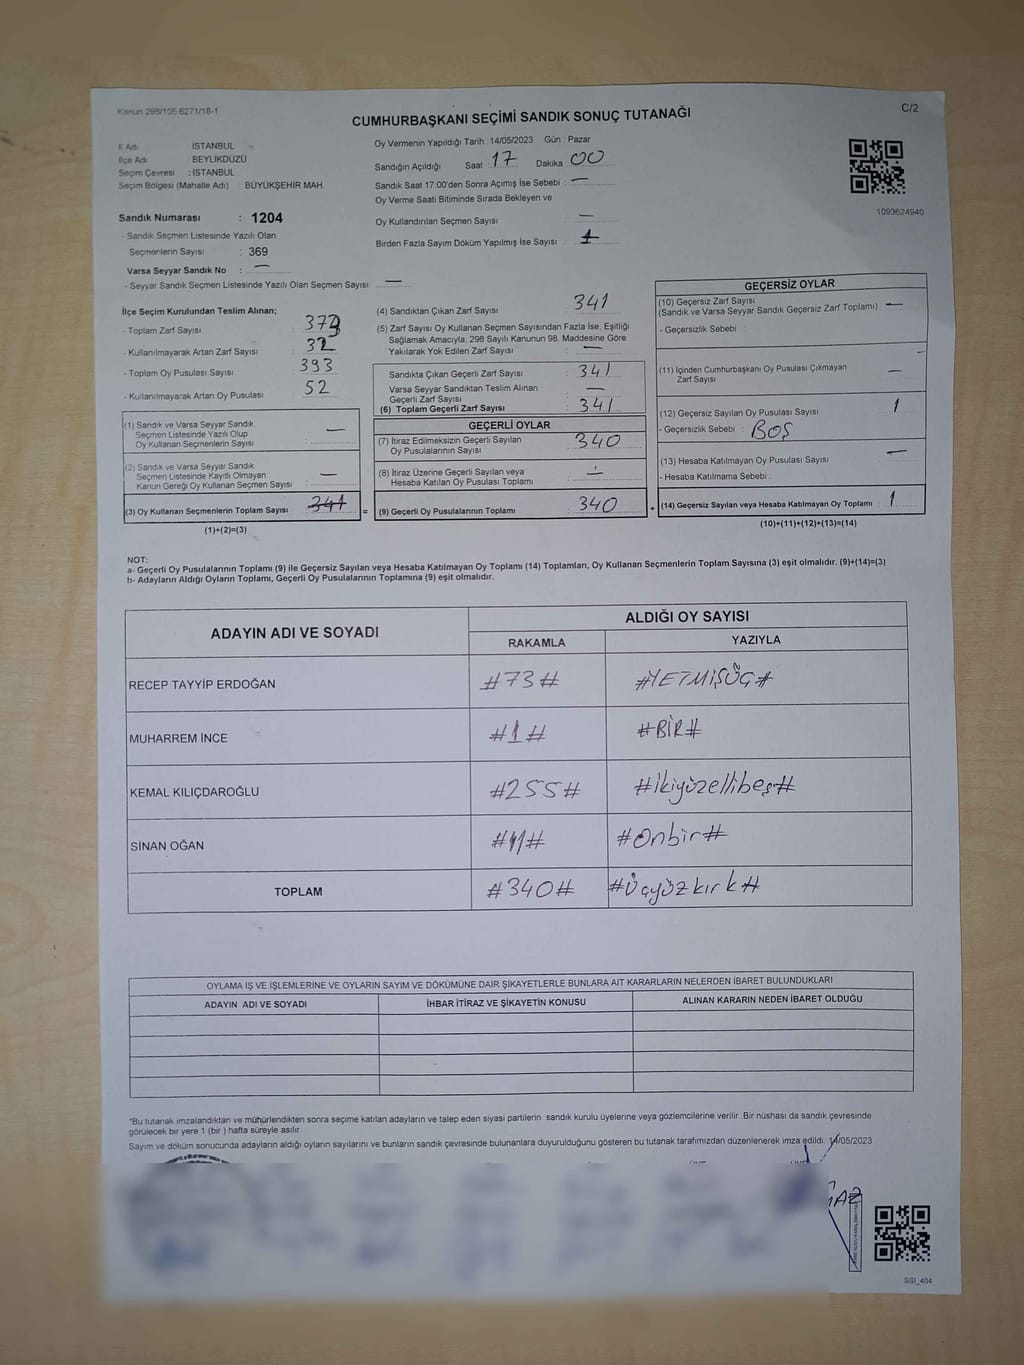 Kanun 298/105 6271/18-1
C/2
CUMHURBAŞKANI SEÇİMİ SANDIK SONUÇ TUTANAĞI
İl Adı : İSTANBUL
İlçe Adı : BEYLİKDÜZÜ
Seçim Çevresi : İSTANBUL
Seçim Bölgesi (Mahalle Adı) : BÜYÜKŞEHİR MAH.
Sandık Numarası : 1204
- Sandık Seçmen Listesinde Yazılı Olan
Seçmenlerin Sayısı : 369
Varsa Seyyar Sandık No : —
- Seyyar Sandık Seçmen Listesinde Yazılı Olan Seçmen Sayısı : —
Oy Vermenin Yapıldığı Tarih : 14/05/2023 Gün : Pazar
Sandığın Açıldığı Saat : 17 Dakika : 00
Sandık Saat 17:00'den Sonra Açımış İse Sebebi : —
Oy Verme Saati Bitiminde Sırada Bekleyen ve
Oy Kullandırılan Seçmen Sayısı : —
Birden Fazla Sayım Döküm Yapılmış İse Sayısı :
1093624940
İlçe Seçim Kurulundan Teslim Alınan;
- Toplam Zarf Sayısı :
- Kullanılmayarak Artan Zarf Sayısı : 32
- Toplam Oy Pusulası Sayısı : 393
- Kullanılmayarak Artan Oy Pusulası : 52
(1) Sandık ve Varsa Seyyar Sandık
Seçmen Listesinde Yazılı Olup
Oy Kullanan Seçmenlerin Sayısı : —
(2) Sandık ve Varsa Seyyar Sandık
Seçmen Listesinde Kayıtlı Olmayan
Kanun Gereği Oy Kullanan Seçmen Sayısı : —
(3) Oy Kullanan Seçmenlerin Toplam Sayısı : 341 =
(1)+(2)=(3)
(4) Sandıktan Çıkan Zarf Sayısı : 341
(5) Zarf Sayısı Oy Kullanan Seçmen Sayısından Fazla İse, Eşitliği
Sağlamak Amacıyla, 298 Sayılı Kanunun 98. Maddesine Göre
Yakılarak Yok Edilen Zarf Sayısı : —
Sandıkta Çıkan Geçerli Zarf Sayısı : 341
Varsa Seyyar Sandıktan Teslim Alınan
Geçerli Zarf Sayısı : —
(6) Toplam Geçerli Zarf Sayısı : 341
GEÇERLİ OYLAR
(7) İtiraz Edilmeksizin Geçerli Sayılan
Oy Pusulalarının Sayısı : 340
(8) İtiraz Üzerine Geçerli Sayılan veya
Hesaba Katılan Oy Pusulası Toplamı : —
(9) Geçerli Oy Pusulalarının Toplamı : 340 +
GEÇERSİZ OYLAR
(10) Geçersiz Zarf Sayısı
(Sandık ve Varsa Seyyar Sandık Geçersiz Zarf Toplamı) : —
- Geçersizlik Sebebi :
(11) İçinden Cumhurbaşkanı Oy Pusulası Çıkmayan
Zarf Sayısı : —
(12) Geçersiz Sayılan Oy Pusulası Sayısı : 1
- Geçersizlik Sebebi : BOŞ
(13) Hesaba Katılmayan Oy Pusulası Sayısı : —
- Hesaba Katılmama Sebebi :
(14) Geçersiz Sayılan veya Hesaba Katılmayan Oy Toplamı : 1
(10)+(11)+(12)+(13)=(14)
NOT:
a- Geçerli Oy Pusulalarının Toplamı (9) ile Geçersiz Sayılan veya Hesaba Katılmayan Oy Toplamı (14) Toplamları, Oy Kullanan Seçmenlerin Toplam Sayısına (3) eşit olmalıdır. (9)+(14)=(3)
b- Adayların Aldığı Oyların Toplamı, Geçerli Oy Pusulalarının Toplamına (9) eşit olmalıdır.
ADAYIN ADI VE SOYADI ALDIĞI OY SAYISI
RAKAMLA YAZIYLA
RECEP TAYYİP ERDOĞAN #73# #YETMİŞÜÇ#
MUHARREM İNCE #1# #BİR#
KEMAL KILIÇDAROĞLU #255# #İkiyüzellibeş#
SİNAN OĞAN #11# #Onbir#
TOPLAM #340# #Üçyüzkırk#
OYLAMA İŞ VE İŞLEMLERİNE VE OYLARIN SAYIM VE DÖKÜMÜNE DAİR ŞİKAYETLERLE BUNLARA AİT KARARLARIN NELERDEN İBARET BULUNDUKLARI
ADAYIN ADI VE SOYADI İHBAR İTİRAZ VE ŞİKAYETİN KONUSU ALINAN KARARIN NEDEN İBARET OLDUĞU
*Bu tutanak imzalandıktan ve mühürlendikten sonra seçime katılan adayların ve talep eden siyasi partilerin sandık kurulu üyelerine veya gözlemcilerine verilir. Bir nüshası da sandık çevresinde
görülecek bir yere 1 (bir) hafta süreyle asılır.
Sayım ve döküm sonucunda adayların aldığı oyların sayılarını ve bunların sandık çevresinde bulunanlara duyurulduğunu gösteren bu tutanak tarafımızdan düzenlenerek imza edildi. 14/05/2023
SSI_404